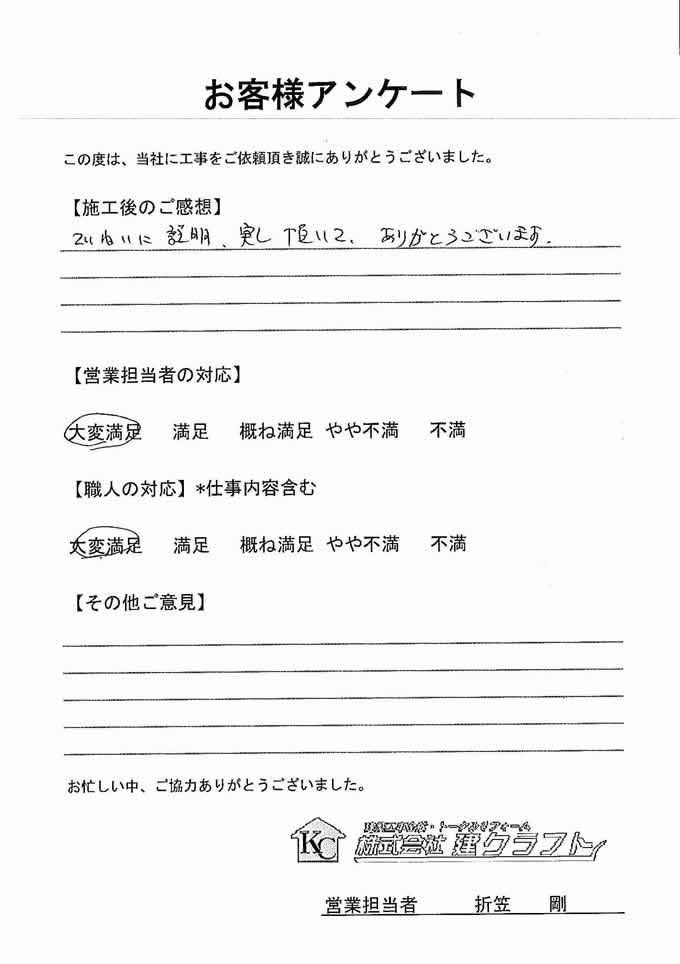 お客様アンケート
この度は、当社に工事をご依頼頂き誠にありがとうございました。
【施工後のご感想】
ていねいに 説明、実し 頂いて、ありがとうございます.
【営業担当者の対応】
大変満足 満足 概ね満足 やや不満 不満
【職人の対応】*仕事内容含む
大変満足 満足 概ね満足 やや不満 不満
【その他ご意見】
お忙しい中、ご協力ありがとうございました。
KC
トータルリフォーム
株式会社 建クラフト
営業担当者 折笠 剛